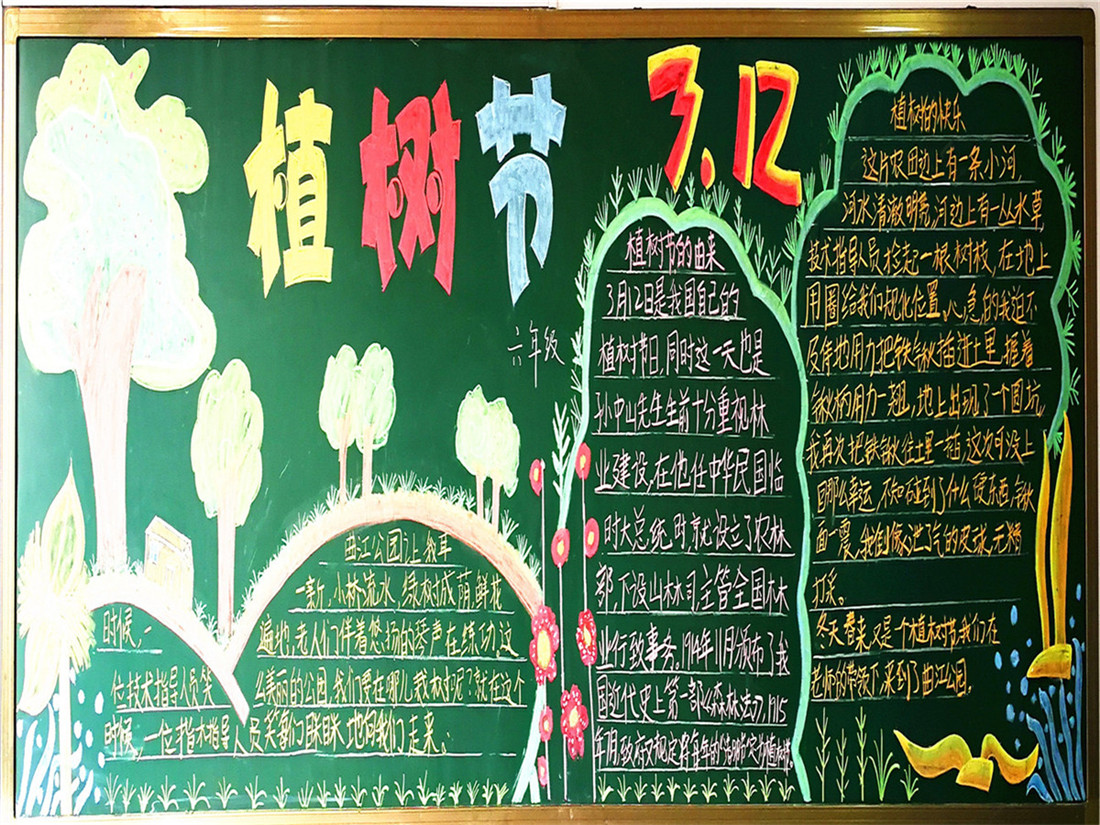 植树节
3.12
六年级
植树节的由来
3月12日是我国自己的
植树节日,同时这一天也是
孙中山先生生前十分重视林
业建设,在他任中华民国临
时大总统时,就设立了农林
部,下设山林司,主管全国林
业行政事务,1914年11月颁布了我
国近代史上第一部《森林法》,1915
年月,政府又规定将每年的"清明"定为植树节。
植树的快乐
这片农田边上有一条小河,
河水清澈明亮,河边上有一丛水草,
技术指导人员捡起一根树枝,在地上
用圈给我们规化位置,心急的我迫不
及待地用力把铁锹插进土里,握着
锹柄用力一翘,地上出现了一个圆坑,
我再次把铁锹往土里一插,这次可没上
回那么幸运,不知碰到了什么硬东西,锹
面一震,我倒像泄气的皮球,无精
打采。
冬天春来,又是一个植树节,我们在
老师的带领下来到了曲江公园。
曲江公园门上
一亲斤,小桥流水,绿树成荫,鲜花
遍地,老人们伴着悠扬的琴声在练功,这
么美丽的公园,我们要在哪儿栽树呢?就在这个
时候,一
位技术指导人员笑
时候,一位技术指导人员笑眯眯地向我们走来。